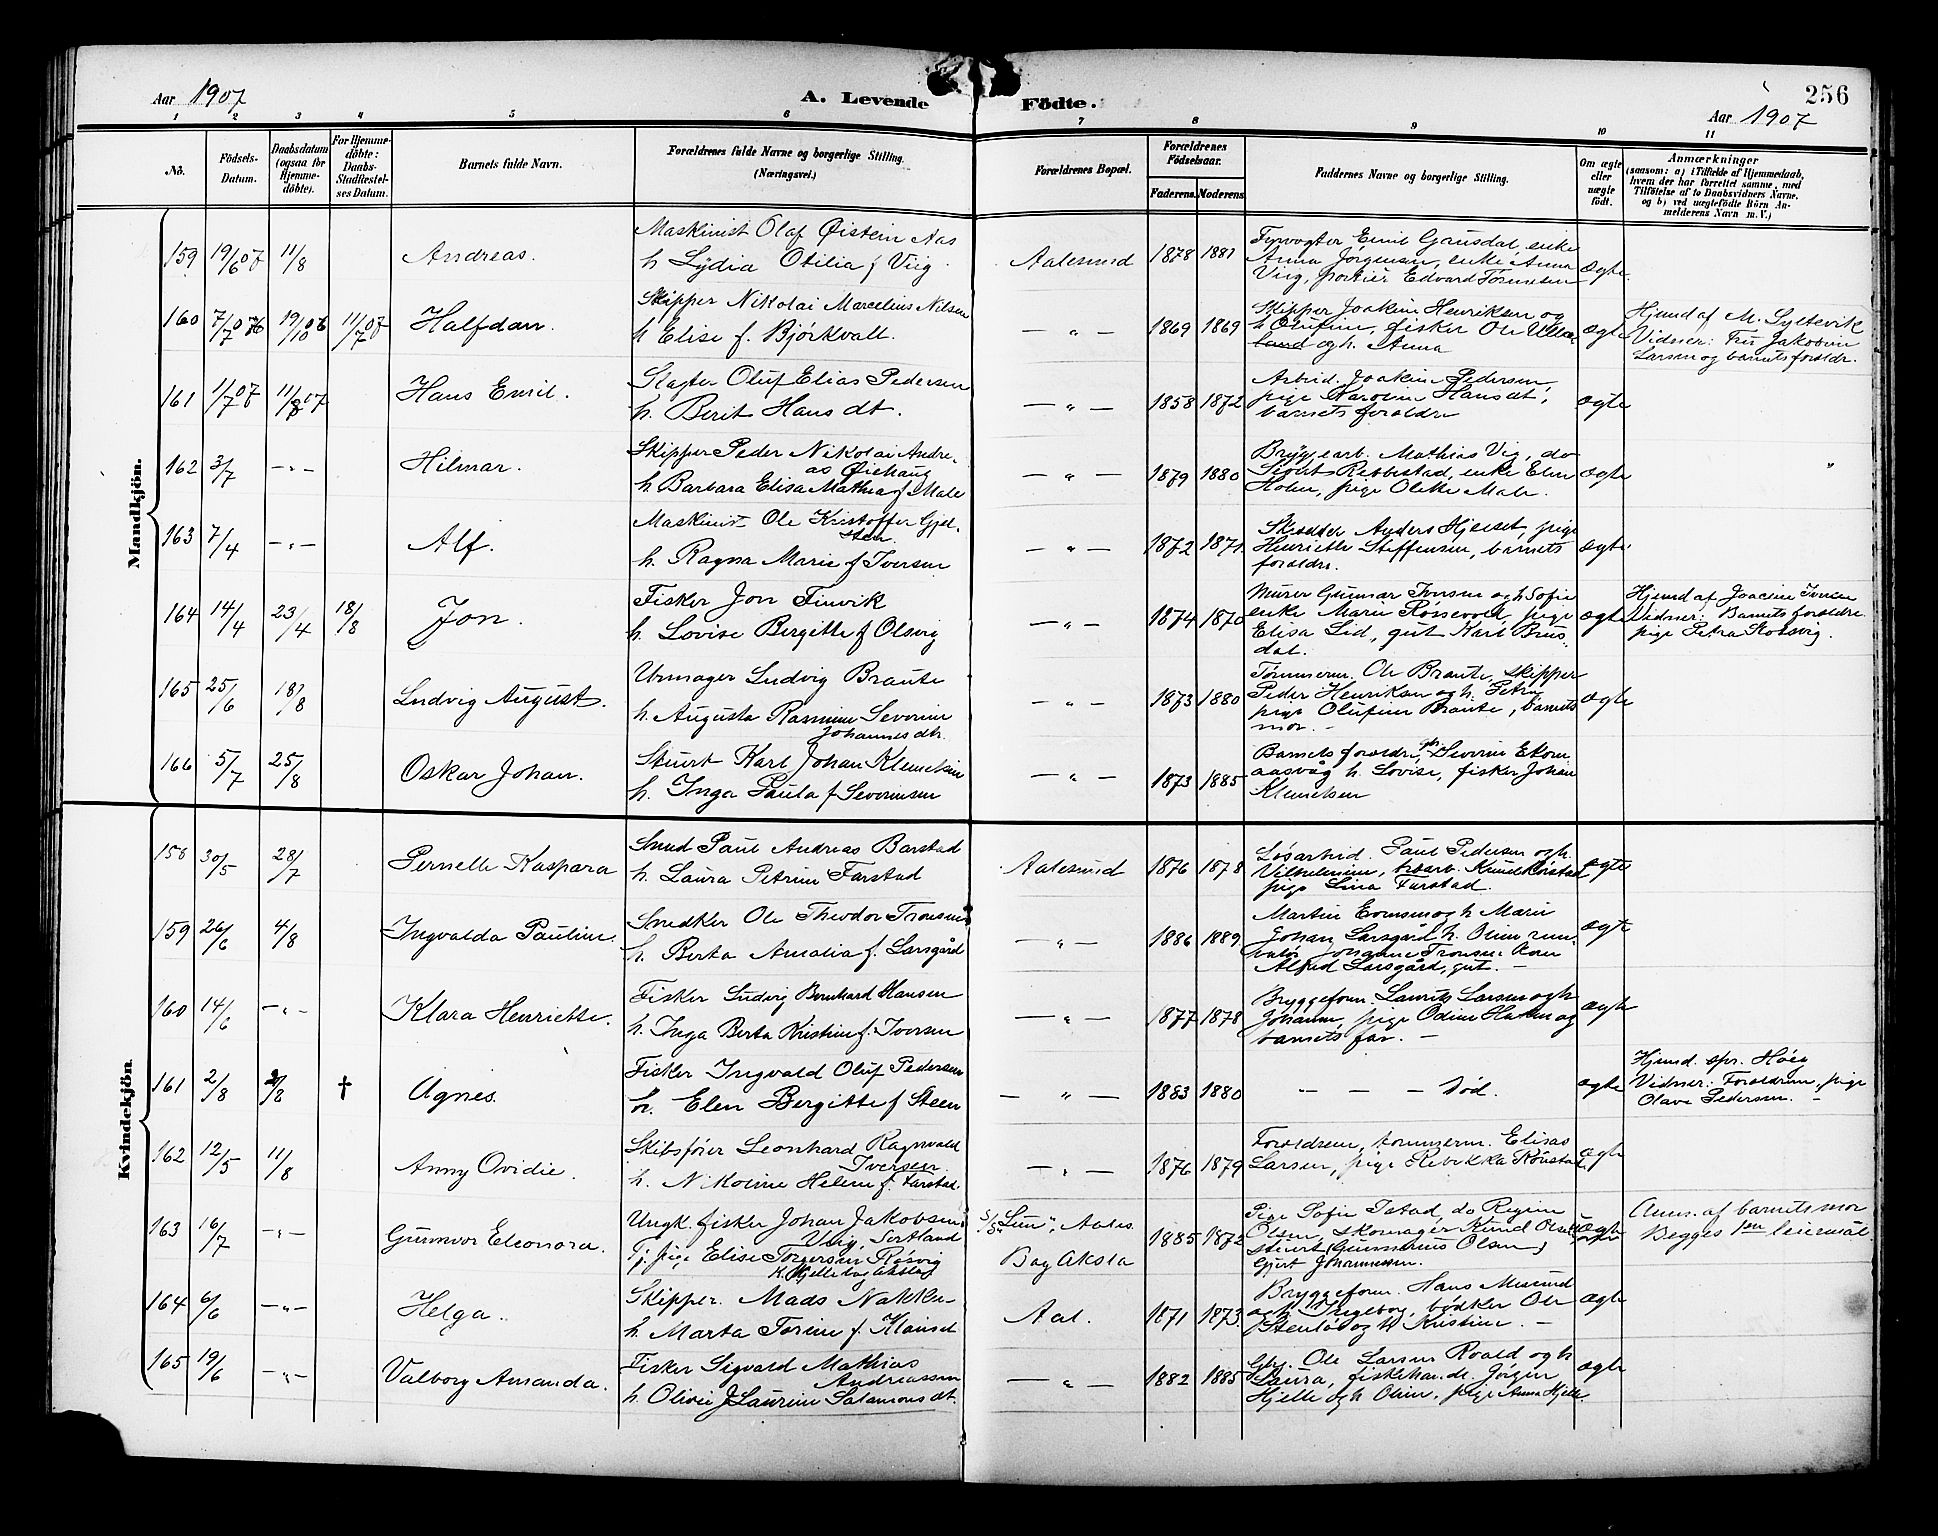 256
Aar 1907
A. Levende Födte.
Aar 1907
1 2 3 4 5 6 7 8 9 10 11
No.
Födsels-Datum.
Daabsdatum (ogsaa for Hjemmedöbte).
For Hjemmedöbte: Daabs-Stadfæstelses Datum.
Barnets fulde Navn.
Forældrenes fulde Navne og borgerlige Stilling. (Næringsvei.)
Forældrenes Bopæl.
Forældrenes Födselsaar.
Faderens. Moderens.
Faddernes Navne og borgerlige Stilling.
Om ægte eller uægte födt.
Anmærkninger
(saasom: a) i Tilfælde af Hjemmedaab, hvem der har forrettet samme, med Tilföielse af to Daabsvidners Navne. og b) ved uægtefödte Börn Anmelderens Navn m. V.)
Mandkjön.
159 19/6 07 11/8
Andreas.
Maskinist Olaf Øistein Aas
h Lydia Otilia f Viig.
Aalesund
1878 1881
Fyrvogter Emil Gausdal, enke
Anna Jørgensen, enke Anna
Viig, portier Edvard
ægte.
160 7/7 06 19/10 06 11/7 07
Halfdan.
Skipper Nikolai Marcelius Nilsen
h Elise f. Bjørkvall.
— " —
1869 1869
Skipper Joakim Henriksen og
h Olufine, fisker Ole
land og h. Anna
ægte
Hjemd af M. Syltevik
Vidner: Fru Jakobine
Larsen og barnets forældr.
161 1/7 07 11/8 07
Hans Emil.
Slagter Oluf Elias Pedersen
h. Berit Hansdt.
— " —
1858 1872
Arbeid. Joakim Pedersen,
pige Karoline Hansdt,
barnets forældre
ægte
162 3/7 — " —
Hilmar.
Skipper Peder Nikolai Andre-
as Øiehaug
h. Barbara Elisa Mathea f Male
— " —
1879 1880
Bryggearb. Mathias Vig, do
Sivert Rebbestad, enke Elen
Holen, pige Olette Male.
ægte
163 7/4 — " —
Alf.
Maskinist Ole Kristoffer Gjel-
sten.
h. Ragna Marie f Iversen
— " —
1872 1871.
Skrædder Anders Hjelset, pige
Henriette Steffensen, barnets
forældre.
ægte.
164 14/4 23/4 18/8
Jon.
Fisker Jon Finvik
h. Lovise Bergitte f Olsvig
— " —
1874 1870
Murer Gunnar Iversen og h Sofie
enke Marie Røssevold, pige
Elisa Lid, gut Karl Brus
dal.
ægte
Hjemd af Joacim Iversen
Vidner: Barnets forældre
pige Petra Kotsvig.
165 25/6 18/8
Ludvig August.
Urmager Ludvig Braute
h. Augusta Rasmine Severine
Johannesdtr.
— " —
1873 1880
Tømmerm. Ole Braute, skipper
Peder Henriksen og h. Petra
pige Olufine Braute, barnets
mor. —
ægte
166 5/7 25/8
Oskar Johan.
Stuert Karl Johan Klemetsen
h. Inga Paula f Severinsen
— " —
1873 1885
Barnets forældre, Severin Ekorn
aasvåg h. Lovise, fisker Johan
Klemetsen
ægte
Kvindekjön
158 30/5 28/7
Pernelle Kaspara
Smed Paul Andreas Barstad
h. Laura Petrine Farstad
Aalesund
1876 1878
Løsarbeid. Paul Pedersen og h.
Vilhelmine, Knud
pige Lina Farstad.
ægte
159 26/6 4/8
Ingvalda Pauline.
Snedker Ole Theodor Tronsen
h. Berta Amalia f. Larsgård
— " —
1886 1889.
Martin og h Marie
Johan Larsgård h. Oline
Johanne Tronsen
Alfred Larsgård, gut. —
ægte
160 14/6 — " —
Klara Henriette.
Fisker Ludvig Bernhard Hansen
h. Inga Berta Kristine f. Iversen
— " —
1877 1878
Bryggeform. Laurits Larsen og h
Johanne, pige Odine Hansen og
barnets far. —
ægte
161 2/8 2/8 †
Agnes.
Fisker Ingvald Oluf Pedersen
h. Elen Bergitte f Steen
— " —
1883 1880
— — — død.
ægte
Hjemd. spr. Høeg
Vidner: Forældrene, pige
Olava Pedersen. —
162 12/5 11/8
Anny Ovidie.
Skibsfører Leonhard Ragnvald
Iversen
h. Nikoline Helene f. Farstad.
— " —
1876 1879
Forældrene, tømmerm. Elisas
Larsen, pige Rebekka
ægte
163 16/7 — " —
Gunnvor Eleonora.
Ungk. fisker Johan Jakobsen
Viig, Sortland
Tj. pige Elise Torgersen Røsvig
S/S "Lun", Aales.
Bag Aksla
1885 1872
Pige Sofie Istad, do Regine
Olsen, skomager Knud Olsen
stuert (Gunnerius Olsen)
Gjert Johannessen.
uægte
Anm. af barnets mor
Begges 1ste leiermål
164 6/6 — " —
Helga.
Skipper. Mads Nakke-
h. Marta Torine f. Klauset
Aal.
1871 1873
Bryggeform. Hans Misund
og h Ingeborg, bødker Ole
Stenløs og h Kristine. —
ægte
165 19/6 — " —
Valborg Amanda.
Fisker Sigvald Mathias
Andreassen
h. Olivie J Laurine Salamonsdt.
— " —
1882 1885
Gbr. Ole Larsen Roald og h
Laura, fiskehandl. Jørgen
Hjelle og h Oline, pige Anna Hjelle
ægte